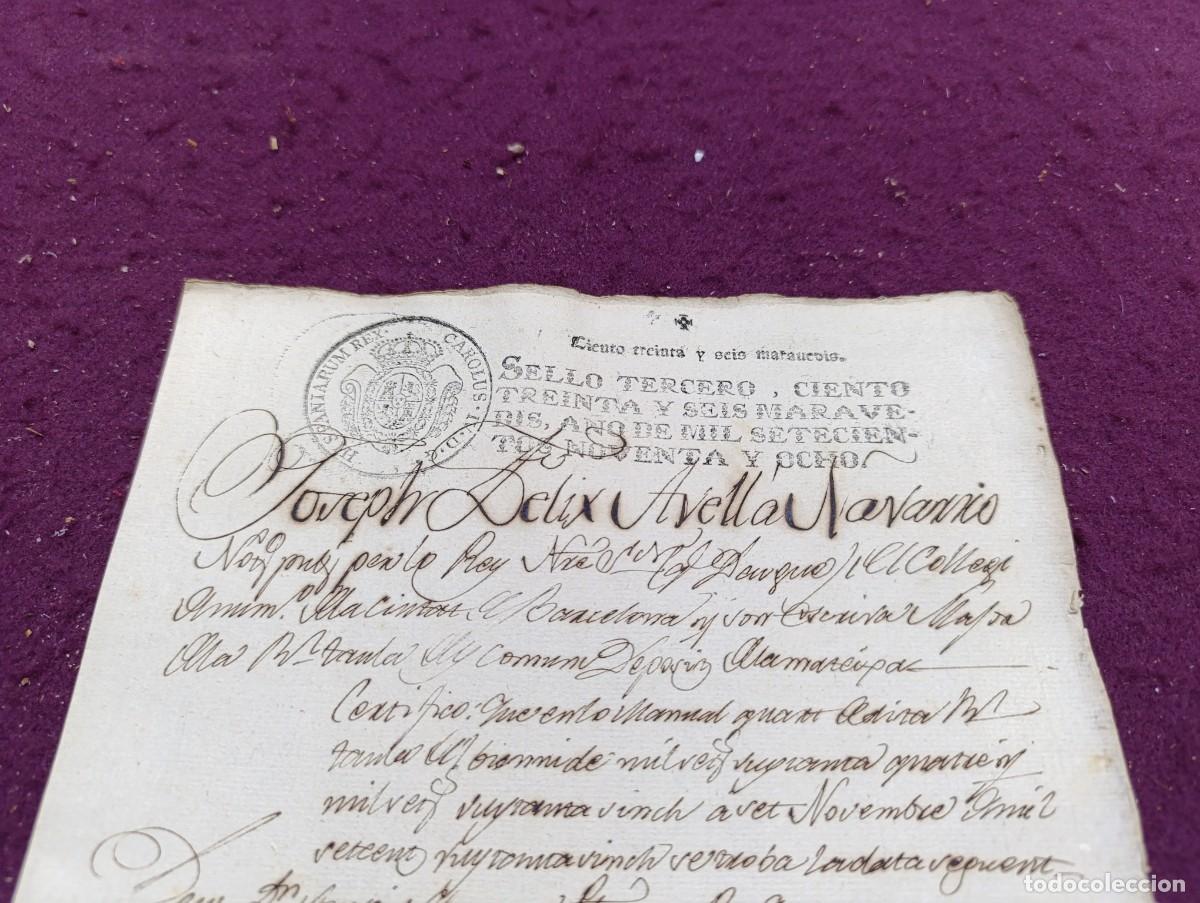 HISPANIARUM REX. CAROLUS. IV. D. G.
Ciento treinta y seis marauedis.
SELLO TERCERO, CIENTO
TREINTA Y SEIS MARAVE-
DIS, AÑO DE MIL SETECIEN-
TOS NOVENTA Y OCHO.
Joseph Felix Avellá Navarro
per lo Rey Nre Sr El Collegi
Barcelona y son Escriva Major
Rl taula comun Deposit Dela mateixa
Certifico: Que en lo Manual quart de dita Rl
taula bienni de mil set vuytanta quatre y
mil set vuytanta sinch a set Novembre mil
setcent vuytanta sinch se troba la data seguent
todocoleccion